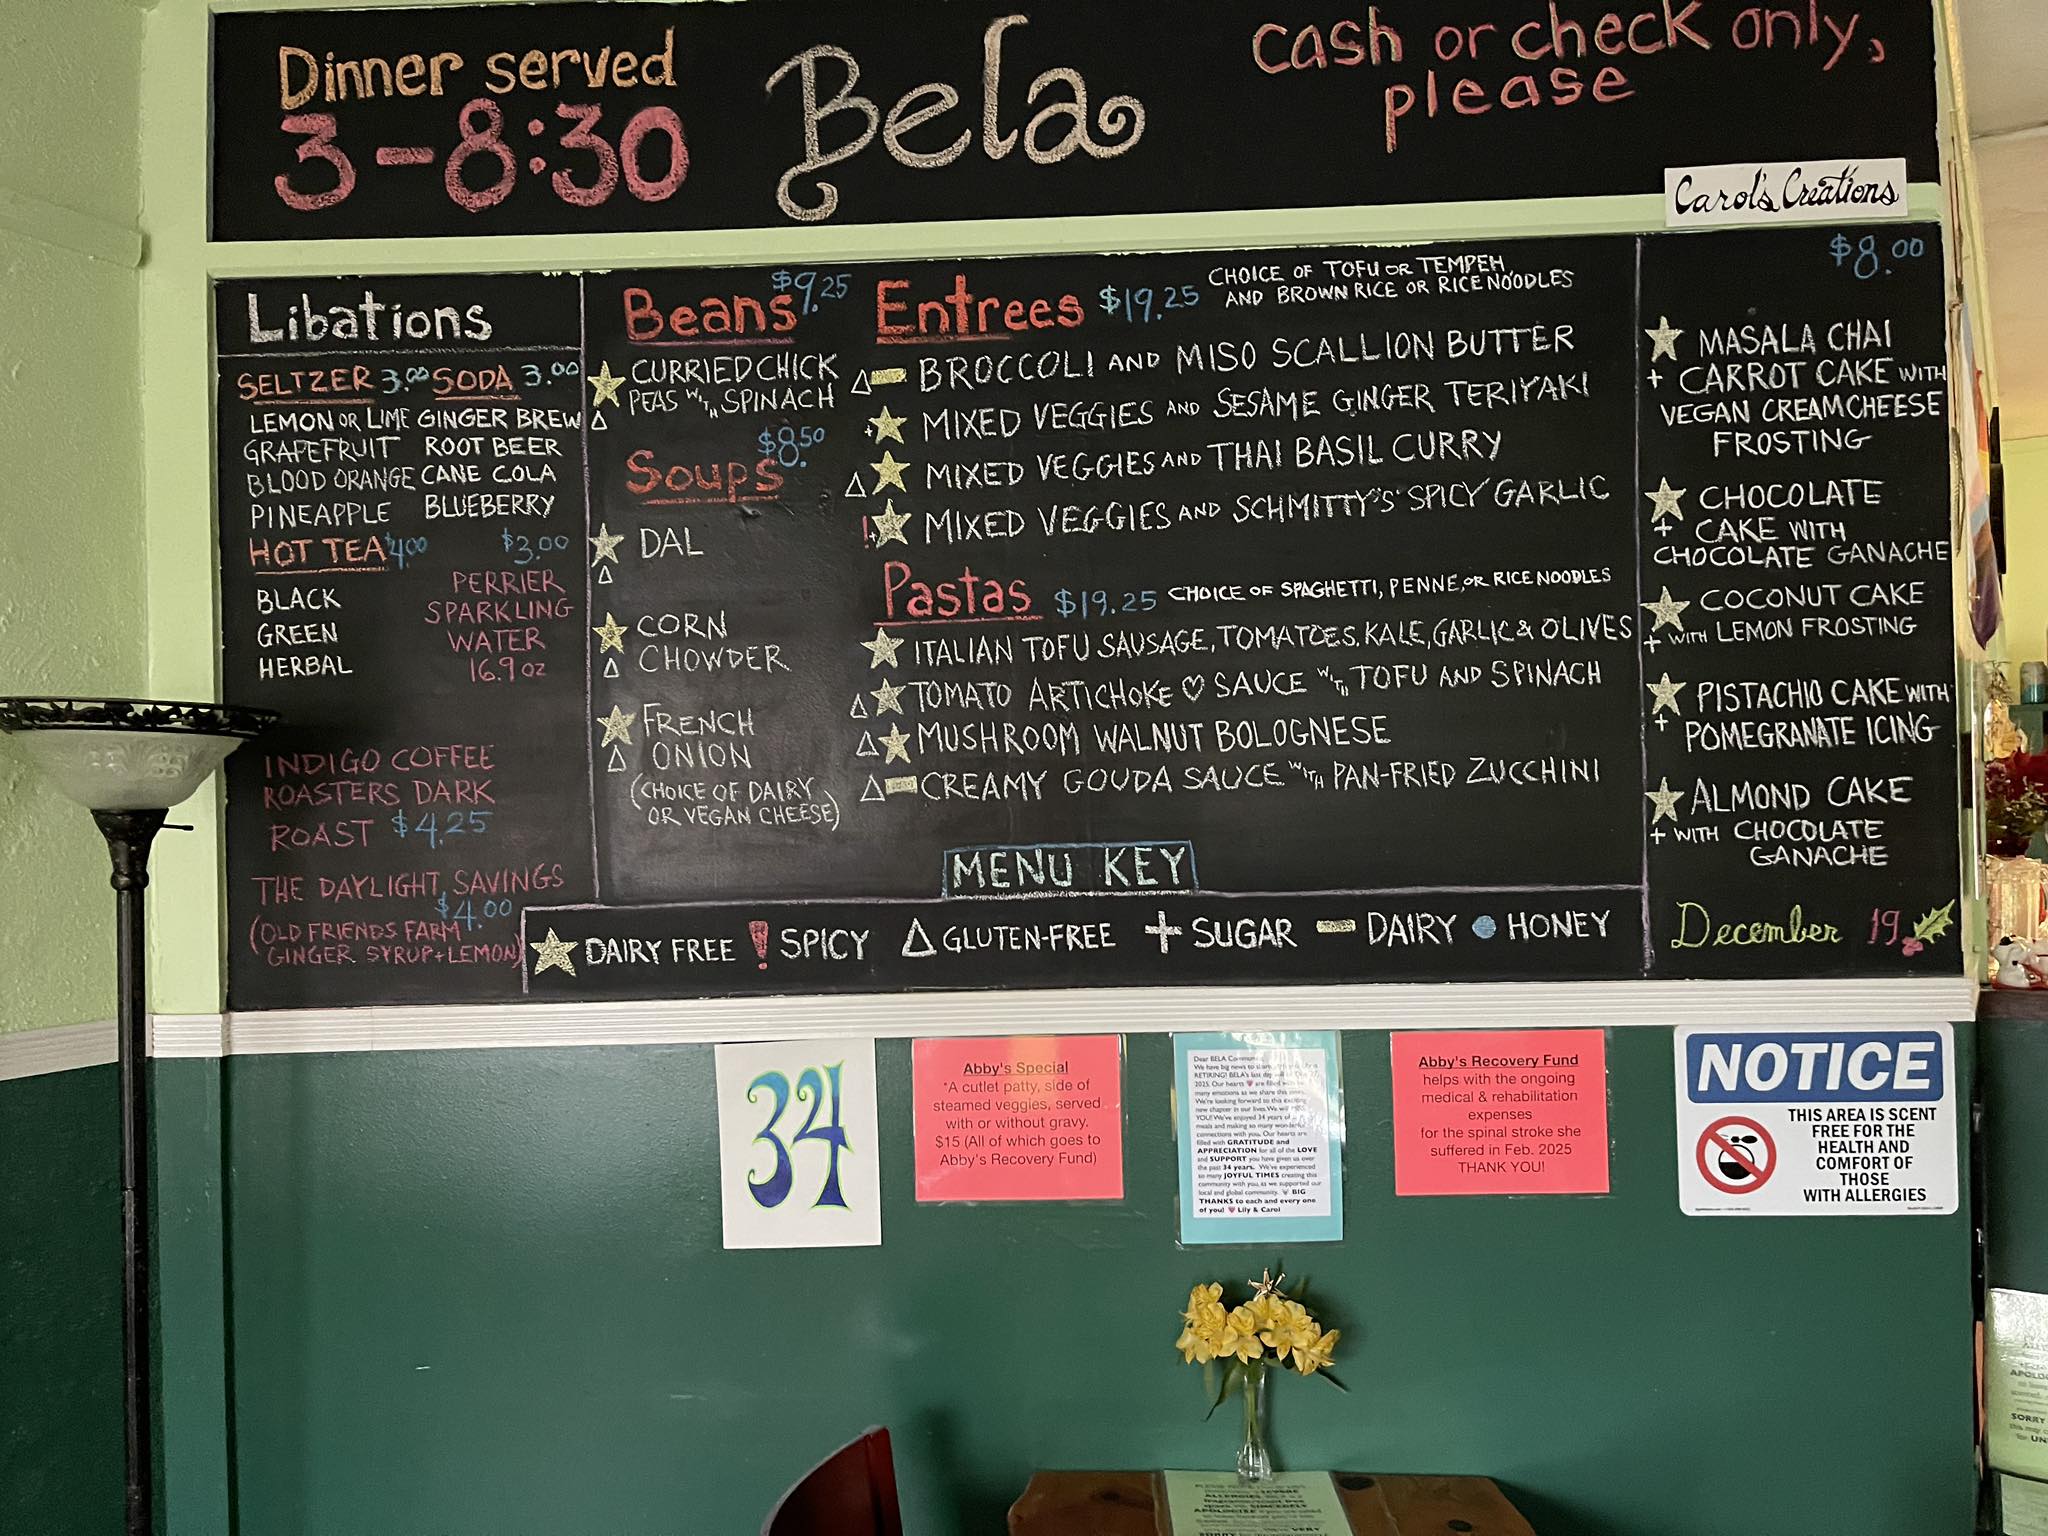 Dinner served
3-8:30
Bela
cash or check only,
please
Carol's Creations
Libations
SELTZER 3.00 SODA 3.00
LEMON OR LIME GINGER BREW
GRAPEFRUIT ROOT BEER
BLOOD ORANGE CANE COLA
PINEAPPLE BLUEBERRY
HOT TEA $4.00
BLACK
GREEN
HERBAL
$3.00
PERRIER
SPARKLING
WATER
16.9 OZ
INDIGO COFFEE
ROASTERS DARK
ROAST $4.25
THE DAYLIGHT SAVINGS
$4.00
(OLD FRIENDS FARM
GINGER SYRUP+LEMON)
Beans $9.25
CURRIED CHICK
PEAS WITH SPINACH
$8.50
Soups
DAL
CORN
CHOWDER
FRENCH
ONION
(CHOICE OF DAIRY
OR VEGAN CHEESE)
Entrees $19.25 CHOICE OF TOFU OR TEMPEH
AND BROWN RICE OR RICE NOODLES
BROCCOLI AND MISO SCALLION BUTTER
+ MIXED VEGGIES AND SESAME GINGER TERIYAKI
MIXED VEGGIES AND THAI BASIL CURRY
!+ MIXED VEGGIES AND SCHMITTY'S SPICY GARLIC
Pastas $19.25 CHOICE OF SPAGHETTI, PENNE, OR RICE NOODLES
ITALIAN TOFU SAUSAGE, TOMATOES, KALE, GARLIC & OLIVES
TOMATO ARTICHOKE ♡ SAUCE WITH TOFU AND SPINACH
MUSHROOM WALNUT BOLOGNESE
CREAMY GOUDA SAUCE WITH PAN-FRIED ZUCCHINI
MENU KEY
DAIRY FREE ! SPICY △ GLUTEN-FREE + SUGAR – DAIRY HONEY
$8.00
MASALA CHAI
+ CARROT CAKE WITH
VEGAN CREAMCHEESE
FROSTING
CHOCOLATE
+ CAKE WITH
CHOCOLATE GANACHE
COCONUT CAKE
+ WITH LEMON FROSTING
PISTACHIO CAKE WITH
+ POMEGRANATE ICING
ALMOND CAKE
+ WITH CHOCOLATE
GANACHE
December 19
34
Abby's Special
*A cutlet patty, side of
steamed veggies, served
with or without gravy.
$15 (All of which goes to
Abby's Recovery Fund)
Dear BELA Community,
We have big news to share
RETIRING! BELA's last day
2025. Our hearts ♥ are filled with
many emotions as we share this
We're looking forward to this exciting
new chapter in our lives. We will MISS
YOU! We've enjoyed 34 years of
meals and making so many wonderful
connections with you. Our hearts are
filled with GRATITUDE and
APPRECIATION for all of the LOVE
and SUPPORT you have given us over
the past 34 years. We've experienced
so many JOYFUL TIMES creating this
community with you, as we supported our
local and global community. ♥ BIG
THANKS to each and every one
of you! ♥ Lily & Carol
Abby's Recovery Fund
helps with the ongoing
medical & rehabilitation
expenses
for the spinal stroke she
suffered in Feb. 2025
THANK YOU!
NOTICE
THIS AREA IS SCENT
FREE FOR THE
HEALTH AND
COMFORT OF
THOSE
WITH ALLERGIES
SORRY
APOLOGIZE
VERY